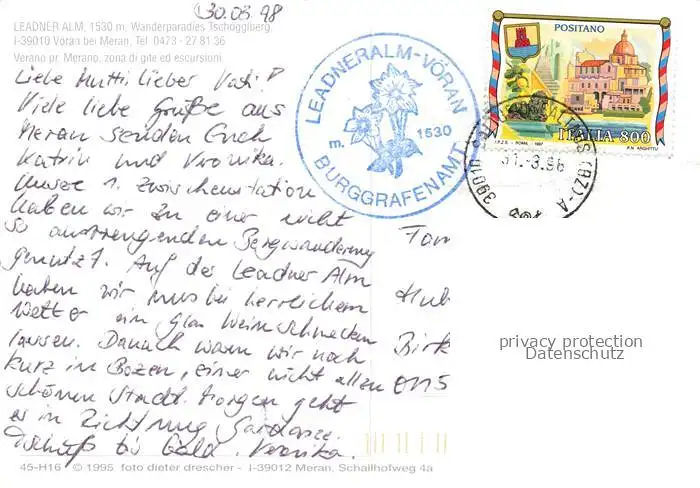 30.03.98
LEADNER ALM, 1530 m, Wanderparadies Tschögglberg,
I-39010 Vöran bei Meran, Tel. 0473 - 27 81 36
Verano pr. Merano, zona di gite ed escursioni
Liebe Mutti, lieber Vati!
Viele liebe Grüße aus
Meran senden Euch
Katrin und Veronika.
Unsere 1. Zwischenstation
haben wir zu einer nicht
so anstrengenden Bergwanderung
genutzt. Auf der Leadner Alm
haben wir uns bei herrlichem
Wetter ein Glas Wein schmecken
lassen. Danach waren wir noch
kurz in Bozen, einer nicht allzu
schönen Stadt. Morgen geht
es in Richtung Gardasee.
Tschüß bis bald. Veronika.
LEADNERALM-VÖRAN
m. 1530
BURGGRAFENAMT
POSITANO
ITALIA 800
I.P.Z.S. - ROMA - 1997
39010
(BZ)-A
Fam
Hub
Birk
privacy protection
Datenschutz
45-H16 © 1995 foto dieter drescher - I-39012 Meran, Schallhofweg 4a